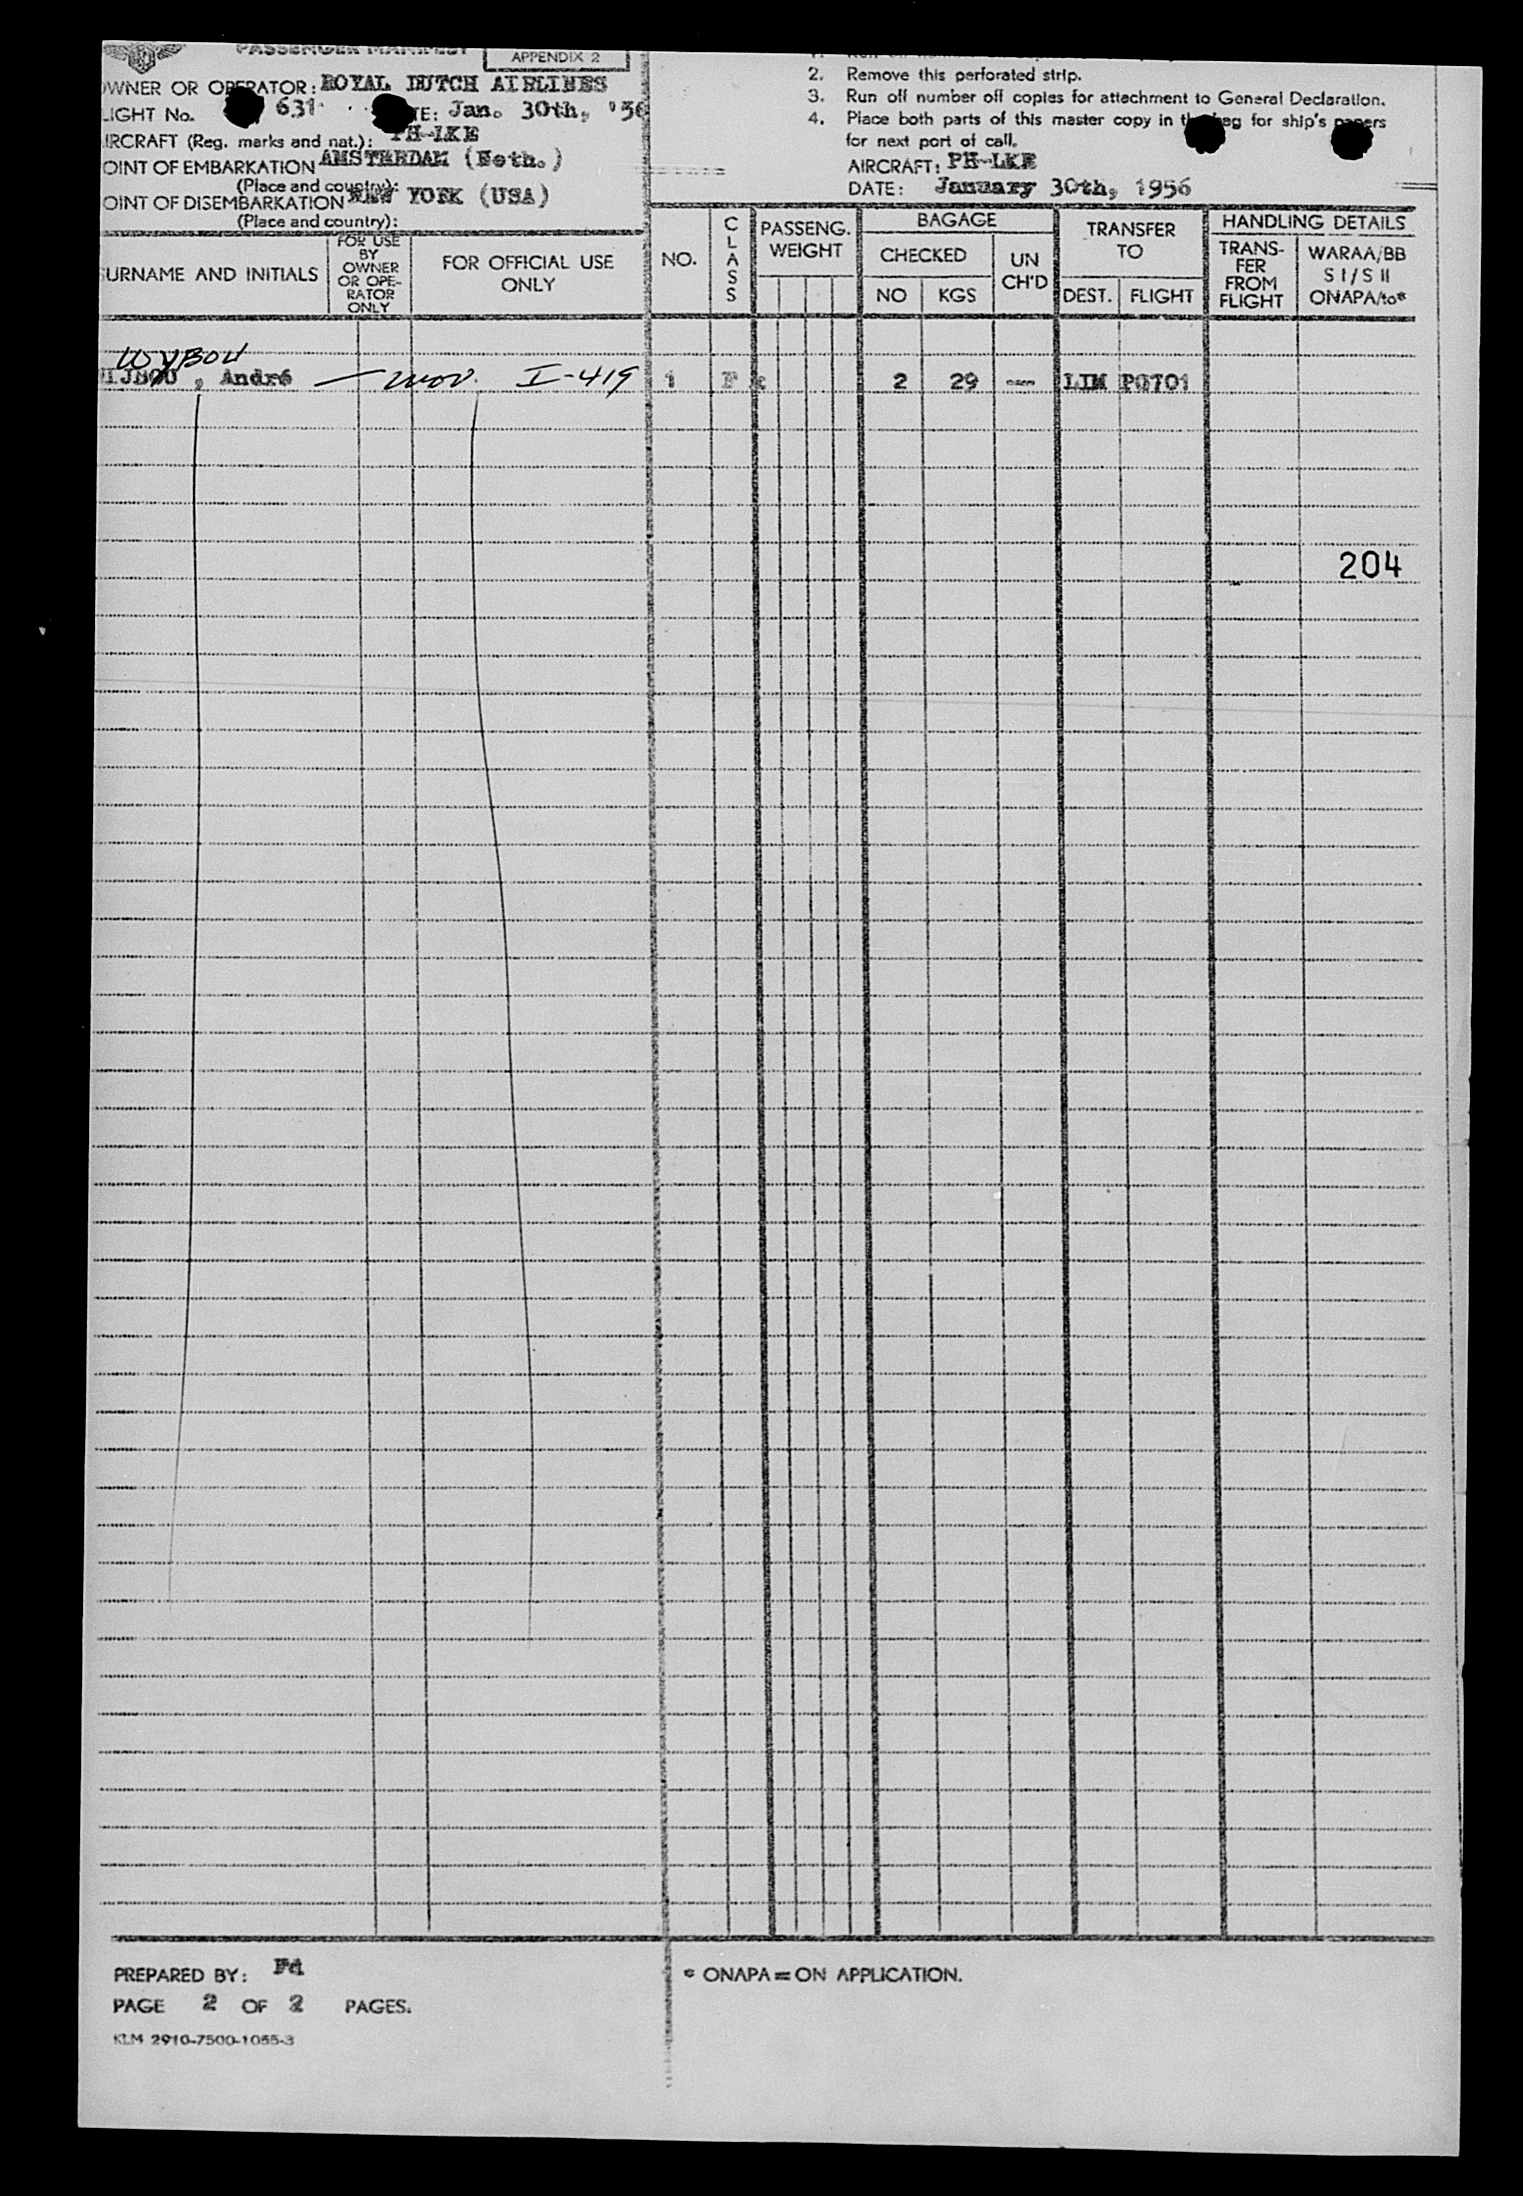 PASSENGER MANIFEST
APPENDIX 2
OWNER OR OPERATOR: ROYAL DUTCH AIRLINES
LIGHT No. 631 TE: Jan. 30th, '56
IRCRAFT (Reg. marks and nat.): PH-LKE
OINT OF EMBARKATION AMSTERDAM (Neth.)
(Place and country):
OINT OF DISEMBARKATION NEW YORK (USA)
(Place and country):
URNAME AND INITIALS
FOR USE BY OWNER OR OPE-RATOR ONLY
FOR OFFICIAL USE ONLY
2. Remove this perforated strip.
3. Run off number off copies for attachment to General Declaration.
4. Place both parts of this master copy in the bag for ship's papers
for next port of call.
AIRCRAFT: PH-LKE
DATE: January 30th, 1956
NO.
CLASS
PASSENG. WEIGHT
BAGAGE
CHECKED
NO KGS
UN CH'D
TRANSFER TO
DEST. FLIGHT
HANDLING DETAILS
TRANS-FER FROM FLIGHT
WARAA/BB
S I / S II
ONAPA/to*
WYBOU
IJBOU , André I-419 1 F 2 29 — LIM PG701
204
PREPARED BY: Fd
PAGE 2 OF 2 PAGES.
KLM 2910-7500-1055-3
* ONAPA = ON APPLICATION.